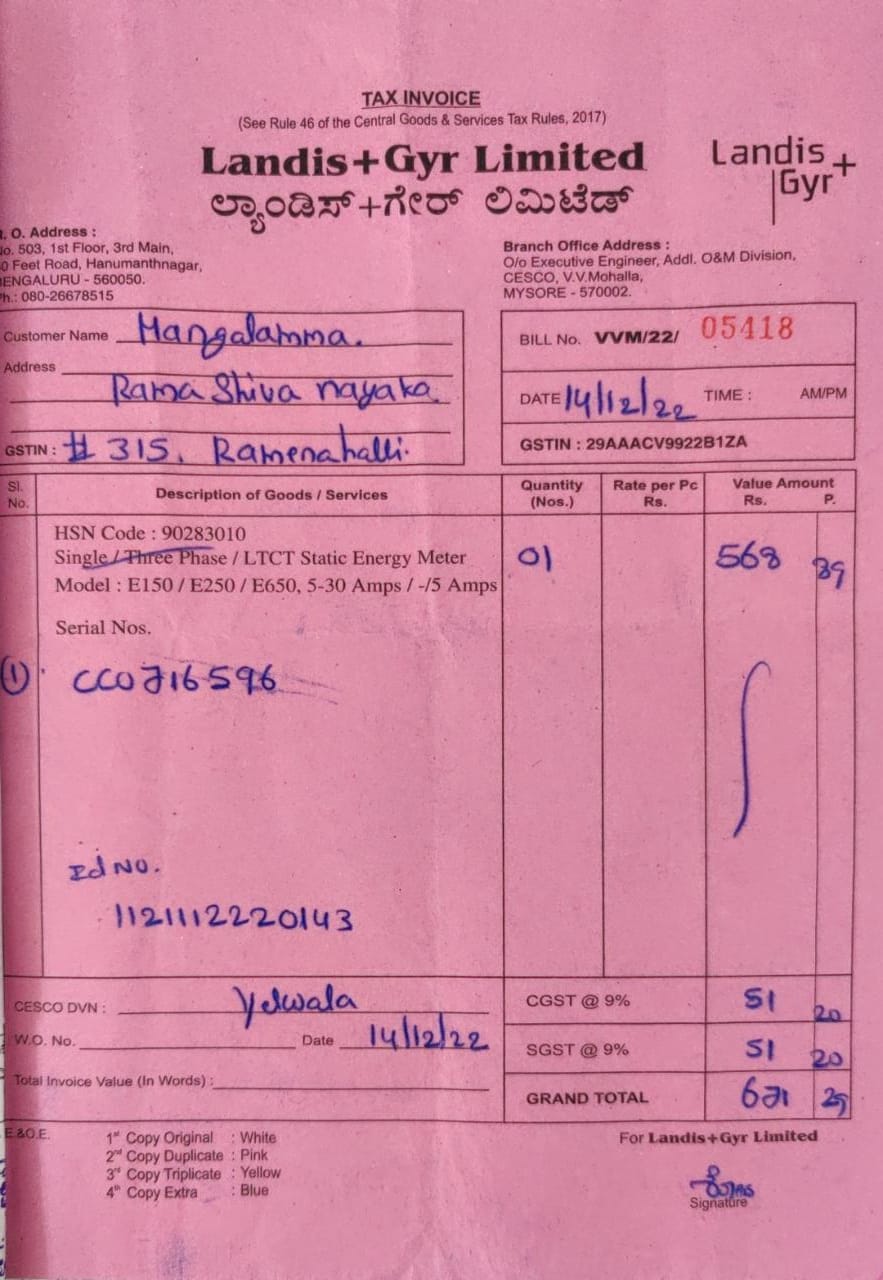 TAX INVOICE
(See Rule 46 of the Central Goods & Services Tax Rules, 2017)
Landis+Gyr Limited
Landis+
Gyr
ಲ್ಯಾಂಡಿಸ್+ಗೇರ್ ಲಿಮಿಟೆಡ್
. O. Address :
No. 503, 1st Floor, 3rd Main,
0 Feet Road, Hanumanthnagar,
BENGALURU - 560050.
Ph.: 080-26678515
Branch Office Address :
O/o Executive Engineer, Addl. O&M Division,
CESCO, V.V.Mohalla,
MYSORE - 570002.
Customer Name Mangalamma.
Address
Rama Shiva nayaka
GSTIN : # 315, Ramenahalli.
BILL No. VVM/22/ 05418
DATE 14/12/22 TIME : AM/PM
GSTIN : 29AAACV9922B1ZA
Sl. No. Description of Goods / Services Quantity (Nos.) Rate per Pc Rs. Value Amount Rs. P.
HSN Code : 90283010
Single / Three Phase / LTCT Static Energy Meter 01 568 89
Model : E150 / E250 / E650, 5-30 Amps / -/5 Amps
Serial Nos.
① CC0716596
Id NO.
1121112220143
CESCO DVN : Yelwala
W.O. No. Date 14/12/22
Total Invoice Value (In Words) :
CGST @ 9% 51 20
SGST @ 9% 51 20
GRAND TOTAL 671 29
E.&O.E.
1st Copy Original : White
2nd Copy Duplicate : Pink
3rd Copy Triplicate : Yellow
4th Copy Extra : Blue
For Landis+Gyr Limited
Signature